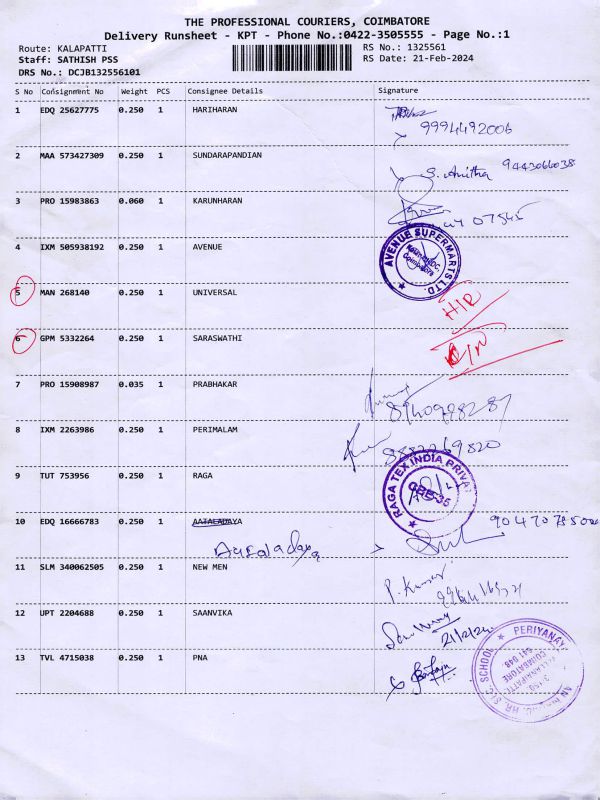 THE PROFESSIONAL COURIERS, COIMBATORE
Delivery Runsheet - KPT - Phone No.:0422-3505555 - Page No.:1
Route: KALAPATTI
Staff: SATHISH PSS
DRS No.: DCJB132556101
RS No.: 1325561
RS Date: 21-Feb-2024
S No Consignment No Weight PCS Consignee Details Signature
1 EDQ 25627775 0.250 1 HARIHARAN
9994492006
2 MAA 573427309 0.250 1 SUNDARAPANDIAN
S. Anitha 9443066038
3 PRO 15983863 0.060 1 KARUNHARAN
07545
4 IXM 505938192 0.250 1 AVENUE
AVENUE SUPERMARTS LTD.
Coimbatore
5 MAN 268140 0.250 1 UNIVERSAL
6 GPM 5332264 0.250 1 SARASWATHI
7 PRO 15908987 0.035 1 PRABHAKAR
8 IXM 2263986 0.250 1 PERIMALAM
9 TUT 753956 0.250 1 RAGA
RAGA TEX INDIA PRIVAT
CBE-35
10 EDQ 16666783 0.250 1 AATALADAYA
11 SLM 340062505 0.250 1 NEW MEN
P. Kumar
12 UPT 2204688 0.250 1 SAANVIKA
21/2/24
13 TVL 4715038 0.250 1 PNA
PERIYANAY
HR. SEC. SCHOOL
COIMBATORE
641 048